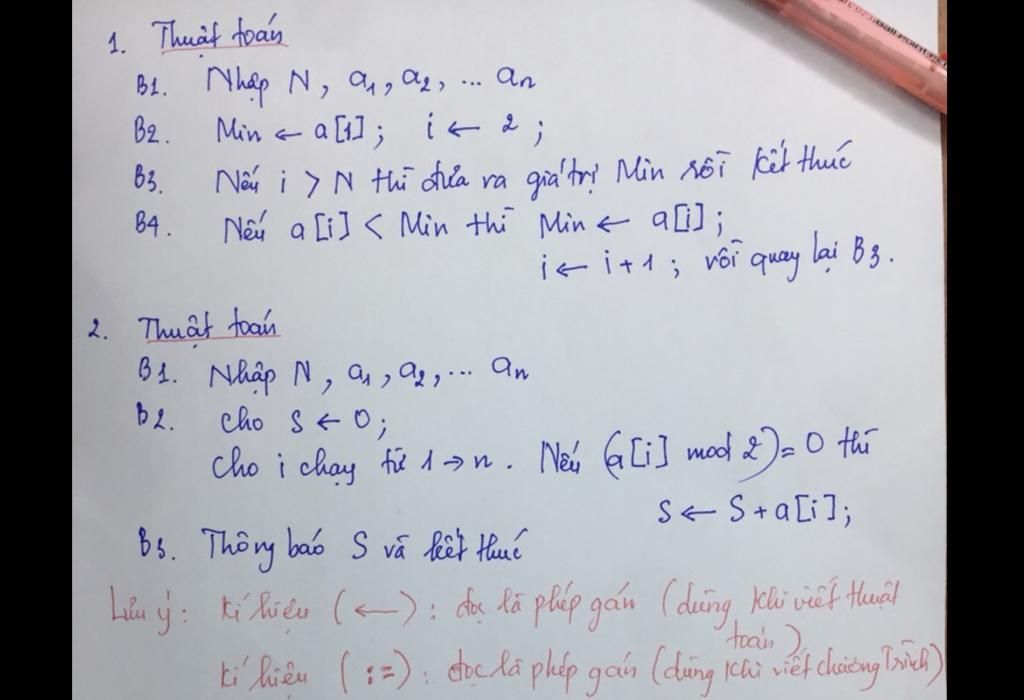 1. Thuật toán
B1. Nhập N, a1, a2, ... an
B2. Min ← a[1]; i ← 2;
B3. Nếu i > N thì đưa ra giá trị Min rồi kết thúc
B4. Nếu a[i] < Min thì Min ← a[i];
i ← i + 1; rồi quay lại B3.
2. Thuật toán
B1. Nhập N, a1, a2, ... an
B2. cho S ← 0;
cho i chạy từ 1 → n. Nếu (a[i] mod 2) = 0 thì
S ← S + a[i];
B3. Thông báo S và kết thúc
Lưu ý: kí hiệu (←): đọc là phép gán (dùng khi viết thuật
toán)
kí hiệu (:=): đọc là phép gán (dùng khi viết chương trình)
Ball Point